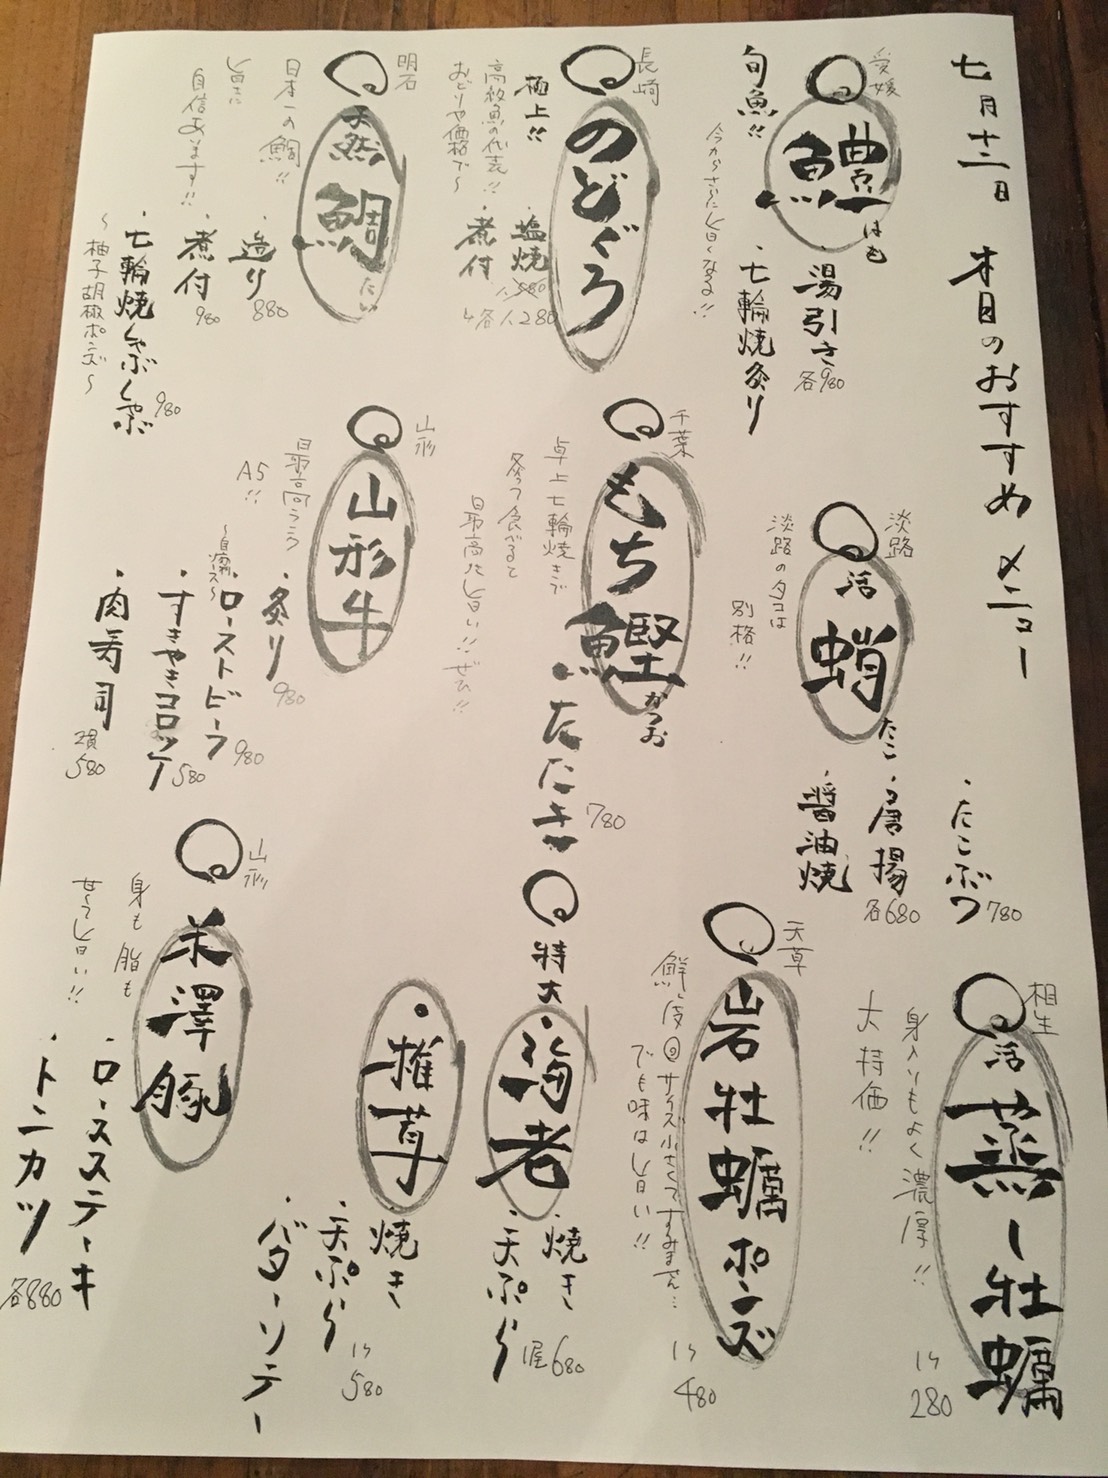 七月十二日 本日のおすすめメニュー
愛媛
鱧
はも
旬魚!!
今からさらに旨くなる!!
・湯引き
・七輪焼炙り
各980
淡路
活蛸
たこ
淡路のタコは
別格!!
・たこぶつ 780
・唐揚
・醤油焼
各680
相生
活蒸し牡蠣
身入りもよく濃厚!!
大特価!!
1ケ
280
長崎
のどぐろ
極上!!
高級魚の代表!!
おどりや価格で〜
・塩焼
・煮付
1,580
各1,280
千葉
もち鰹
かつお
たたき
780
卓上七輪焼きで
炙って食べると
最高に旨い!!ぜひ!!
天草
岩牡蠣ポンズ
鮮度◎サイズ小さくてすみません…
でも味は旨い!!
1ケ
480
特大
海老
・焼き
・天ぷら
1尾680
・椎茸
・焼き
・天ぷら
・バターソテー
1ケ
580
明石
天然鯛
たい
日本一の鯛!!
旨さに
自信あります!!
・造り
880
・煮付
980
・七輪焼しゃぶしゃぶ
980
〜柚子胡椒ポンズ〜
山形
山形牛
最高ランク
A5!!
・炙り
980
・ローストビーフ
980
・すきやきコロッケ
580
・肉寿司
2貫
580
山形
米澤豚
身も脂も
甘くて旨い!!
・ロースステーキ
・トンカツ
各880